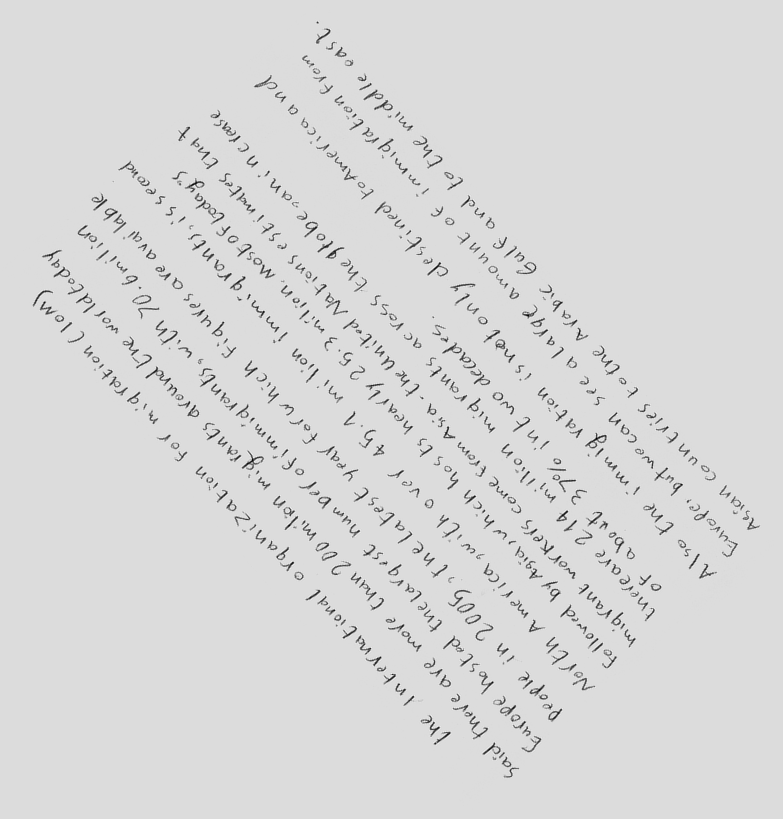 the International organization for migration (IOM)
said there are more than 200 milion migrants around the world today
Europe hosted the largest number of immigrants, with 70.6 million
people in 2005, the latest year for which figures are available
North America, with over 45.1 million immigrants, is second
followed by Asia, which hosts nearly 25.3 million. Most of today's
migrant workers come from Asia. the United Nations estimates that
there are 214 million migrants across the globe, an increase
of about 37% in two decades.
Also the immigration is not only destined to America and
Europe, but we can see a large amount of immigration from
Asian countries to the Arabic Gulf and to the middle east.